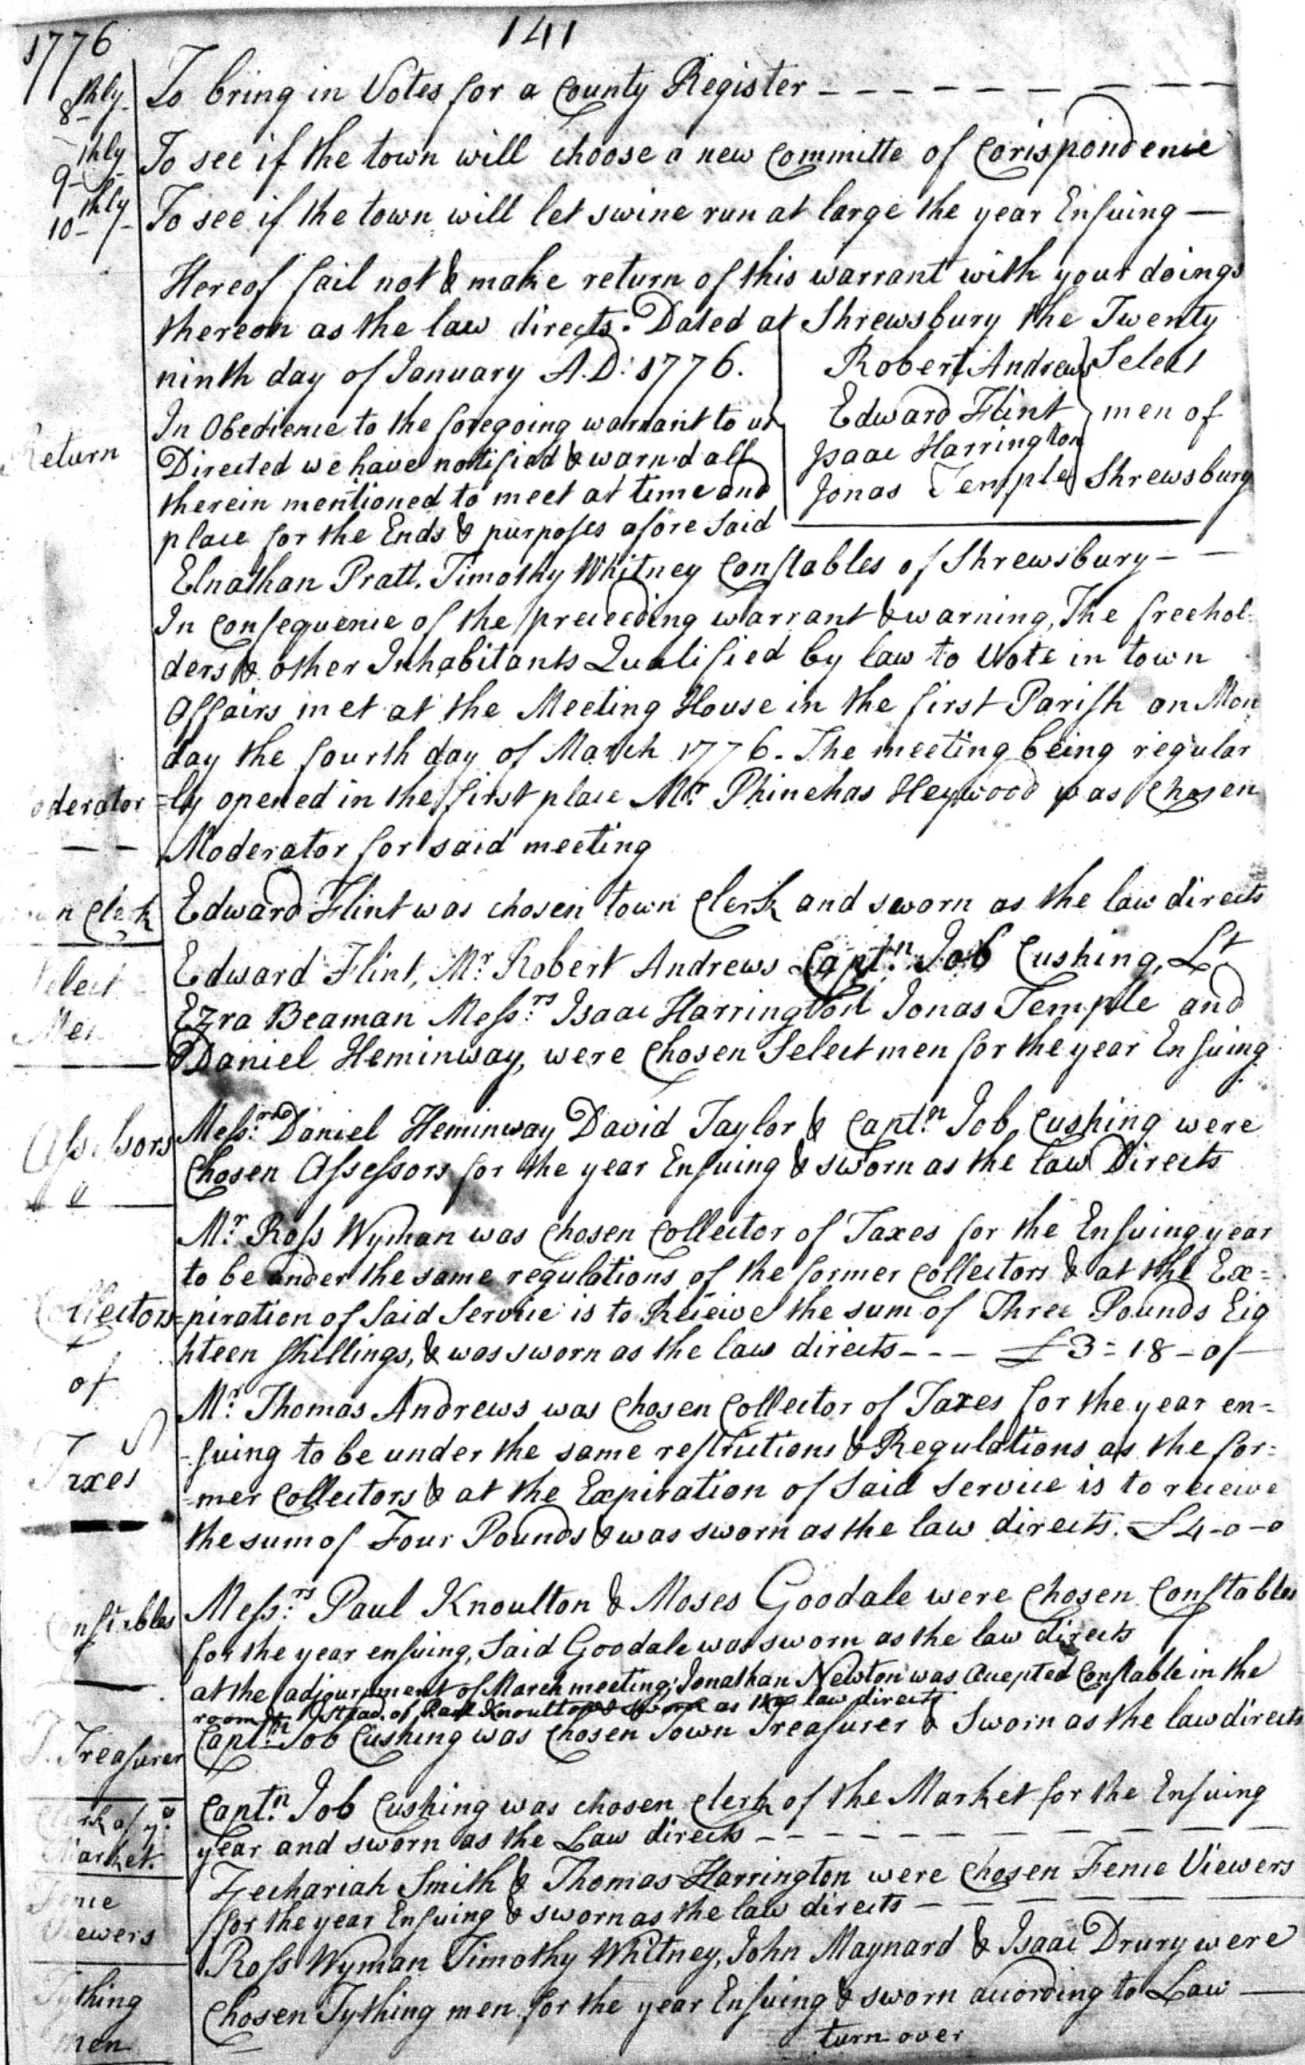 1776
141
8thly To bring in Votes for a County Register
9thly To see if the town will choose a new Committe of Corispondence
10thly To see if the town will let swine run at large the year Ensuing
Hereof fail not & make return of this warrant with your doings
thereon as the law directs. Dated at Shrewsbury the Twenty
ninth day of January A.D: 1776.
Robert Andrews
Edward Flint
Isaac Harrington
Jonas Temple
Select
men of
Shrewsbury
Return
In Obedience to the foregoing warrant to us
Directed we have notified & warn'd all
therein mentioned to meet at time and
place for the Ends & purposes afore said
Elnathan Pratt. Timothy Whitney Constables of Shrewsbury
In Consequence of the preceeding warrant & warning, The freehol-
ders & other Inhabitants Qualified by law to Vote in town
Affairs met at the Meeting House in the first Parish on Mon
day the fourth day of March 1776. The meeting being regular
oderator =ly opened in the first place Mr. Phinehas Heywood was Chosen
Moderator for said meeting
n Clerk Edward Flint was chosen town Clerk and sworn as the law directs
Select Edward Flint, Mr. Robert Andrews Captn. Job Cushing, Lt
Men Ezra Beaman Messrs. Isaac Harrington Jonas Temple and
Daniel Heminway, were Chosen Selectmen for the year Ensuing
Assessors Messrs. Daniel Heminway David Taylor & Captn. Job Cushing were
Chosen Assessors for the year Ensuing & sworn as the law Directs
Mr. Ross Wyman was Chosen Collector of Taxes for the Ensuing year
to be under the same regulations of the former Collectors & at the Ex=
Collectors =piration of Said Service is to Receive the sum of Three Pounds Eig
hteen shillings, & was sworn as the law directs --- £3=18-0
of
Mr. Thomas Andrews was Chosen Collector of Taxes for the year en=
-suing to be under the same restrictions & Regulations as the for=
Taxes -mer Collectors & at the Expiration of Said Service is to receive
the sum of Four Pounds & was sworn as the law directs. £4-0-0
onstables Messrs. Paul Knoulton & Moses Goodale were Chosen Constables
for the year ensuing, Said Goodale was sworn as the law directs
at the adjournment of March meeting Jonathan Newton was Accepted Constable in the
room & Stead of Paul Knoulton & sworn as the law directs
T. Treasurer Captn. Job Cushing was Chosen Town Treasurer & Sworn as the law directs
Clerk of ye. Captn. Job Cushing was chosen Clerk of the Market for the Ensuing
Market. year and sworn as the Law directs
Fence Zechariah Smith & Thomas Harrington were Chosen Fence Viewers
Viewers for the year Ensuing & sworn as the law directs
Ross Wyman Timothy Whitney, John Maynard & Isaac Drury were
Tything Chosen Tything men for the year Ensuing & sworn according to Law
men
turn over